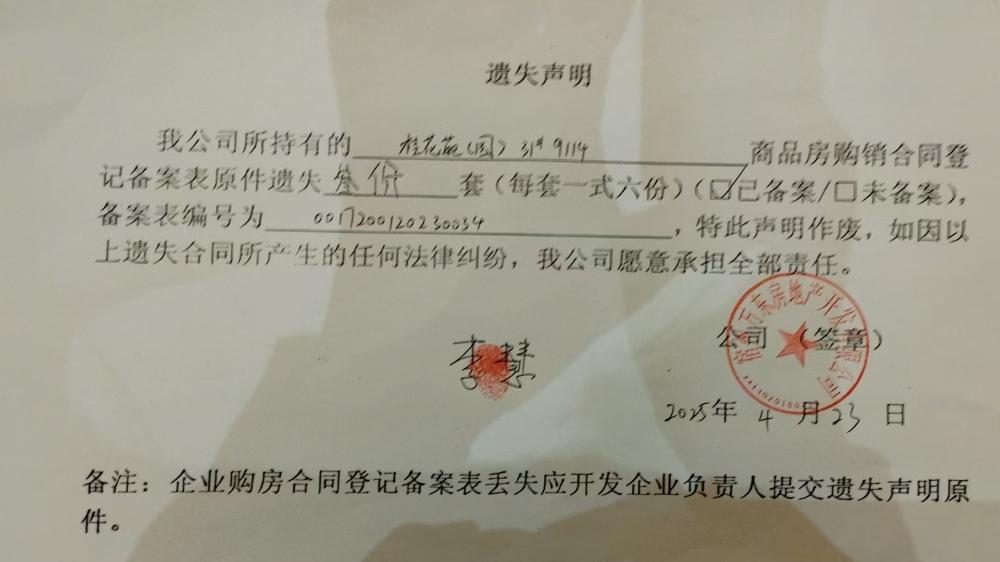 遗失声明
我公司所持有的 桂花苑(园) 31# 9114 商品房购销合同登
记备案表原件遗失 叁份 套（每套一式六份）（☑已备案/□未备案），
备案表编号为 0017200120230034 ，特此声明作废，如因以
上遗失合同所产生的任何法律纠纷，我公司愿意承担全部责任。
公司（签章）
万东房地产开发有限公司
李慧
2025年 4 月 23 日
备注：企业购房合同登记备案表丢失应开发企业负责人提交遗失声明原
件。